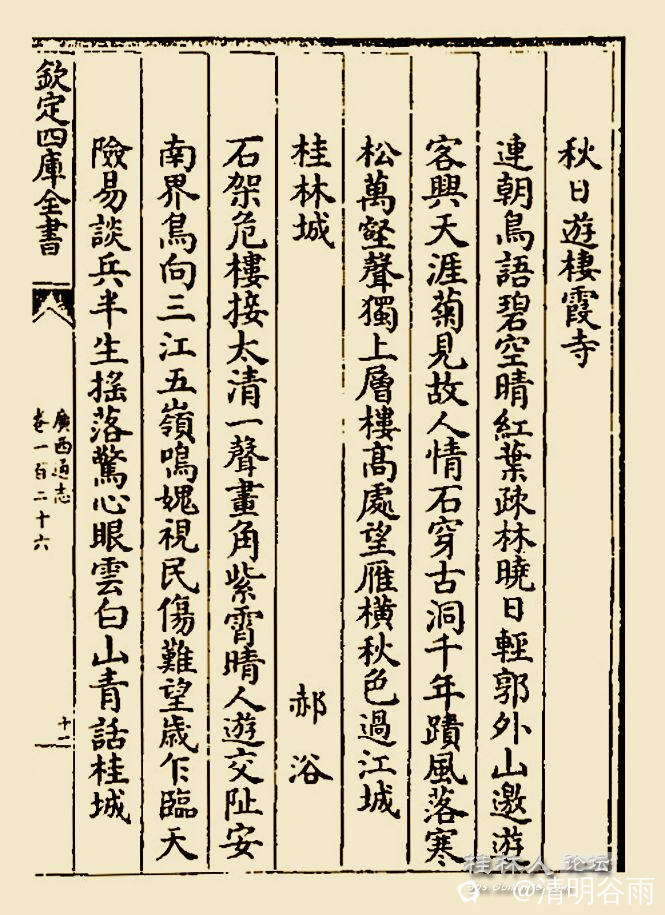 秋日遊棲霞寺
連朝鳥語碧空晴紅葉疎林曉日輕郭外山邀游
客興天涯菊見故人情石穿古洞千年蹟風落寒
松萬壑聲獨上層樓髙處望雁橫秋色過江城
桂林城
郝浴
石架危樓接太清一聲畫角紫霄晴人遊交阯安
南界鳥向三江五嶺鳴媿視民傷難望歲乍臨天
險易談兵半生搖落驚心眼雲白山青話桂城
欽定四庫全書
廣西通志
卷一百二十六
十二
桂林人论坛
@清明谷雨